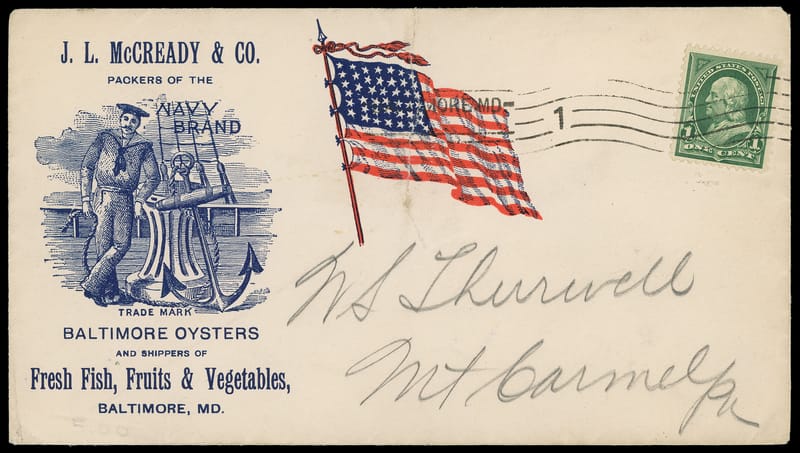 J. L. McCREADY & CO.
PACKERS OF THE
NAVY
BRAND
TRADE MARK
BALTIMORE OYSTERS
AND SHIPPERS OF
Fresh Fish, Fruits & Vegetables,
BALTIMORE, MD.
MORE MD
1
UNITED STATES POSTAGE
1 1
ONE CENT
W S Thurwell
Mt Carmel Pa